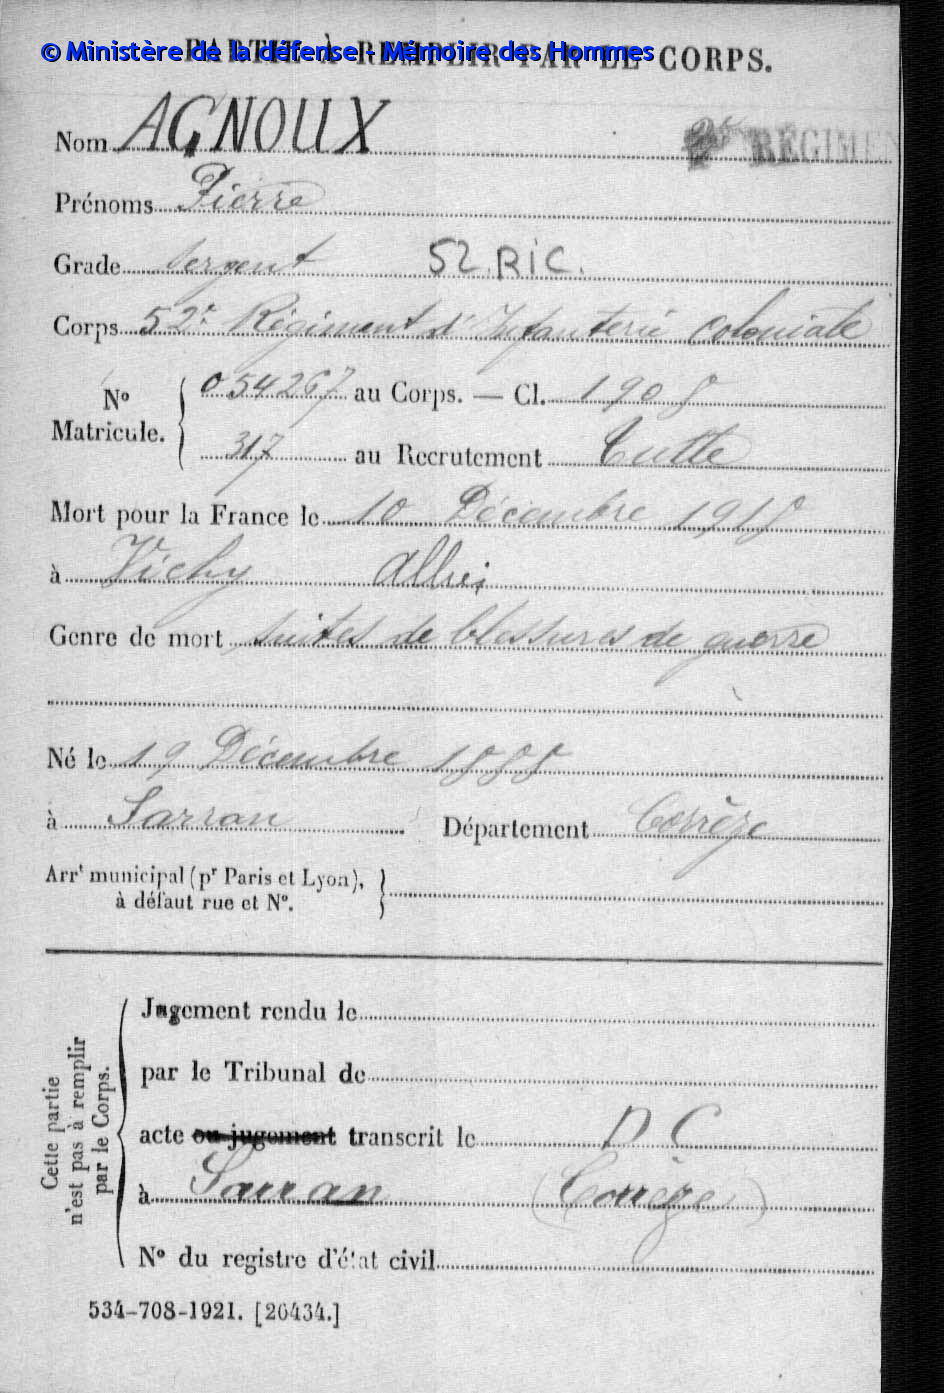 © Ministère de la défense - Mémoire des Hommes
PARTIE À REMPLIR PAR LE CORPS.
Nom AGNOUX
RÉGIMEN
Prénoms Pierre
Grade Sergent 52 RIC.
Corps 52e Régiment d'Infanterie Coloniale
No Matricule. 054267 au Corps. — Cl. 1908
317 au Recrutement Tulle
Mort pour la France le 10 Décembre 1918
à Vichy Allier
Genre de mort suites de blessures de guerre
Né le 19 Décembre 1888
à Sarran Département Corrèze
Arrt municipal (pr Paris et Lyon),
à défaut rue et No.
Cette partie
n'est pas à remplir
par le Corps.
Jugement rendu le
par le Tribunal de
acte ou jugement transcrit le D C
à Sarran (Corrèze)
No du registre d'état civil
534-708-1921. [26434.]